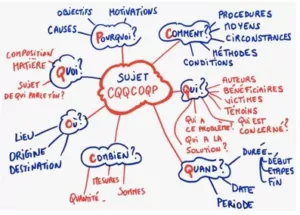 OBJECTIFS
MOTIVATIONS
CAUSES
POURQUOI?
COMMENT?
PROCEDURES
MOYENS
CIRCONSTANCES
MÉTHODES
CONDITIONS
COMPOSITION
MATIÈRE
QUOI?
SUJET
DE QUI PARLE T'ON?
SUJET
CQQCOQP
QUI?
AUTEURS
BENEFICIAIRES
VICTIMES
TÉMOINS
QUI A
CE PROBLEME?
QUI A LA
SOLUTION?
QUI EST
CONCERNÉ?
OÙ?
LIEU
ORIGINE
DESTINATION
COMBIEN?
MESURES
QUANTITÉ
SOMMES
QUAND?
DURÉE
DÉBUT
ETAPES
FIN
DATE
PERIODE